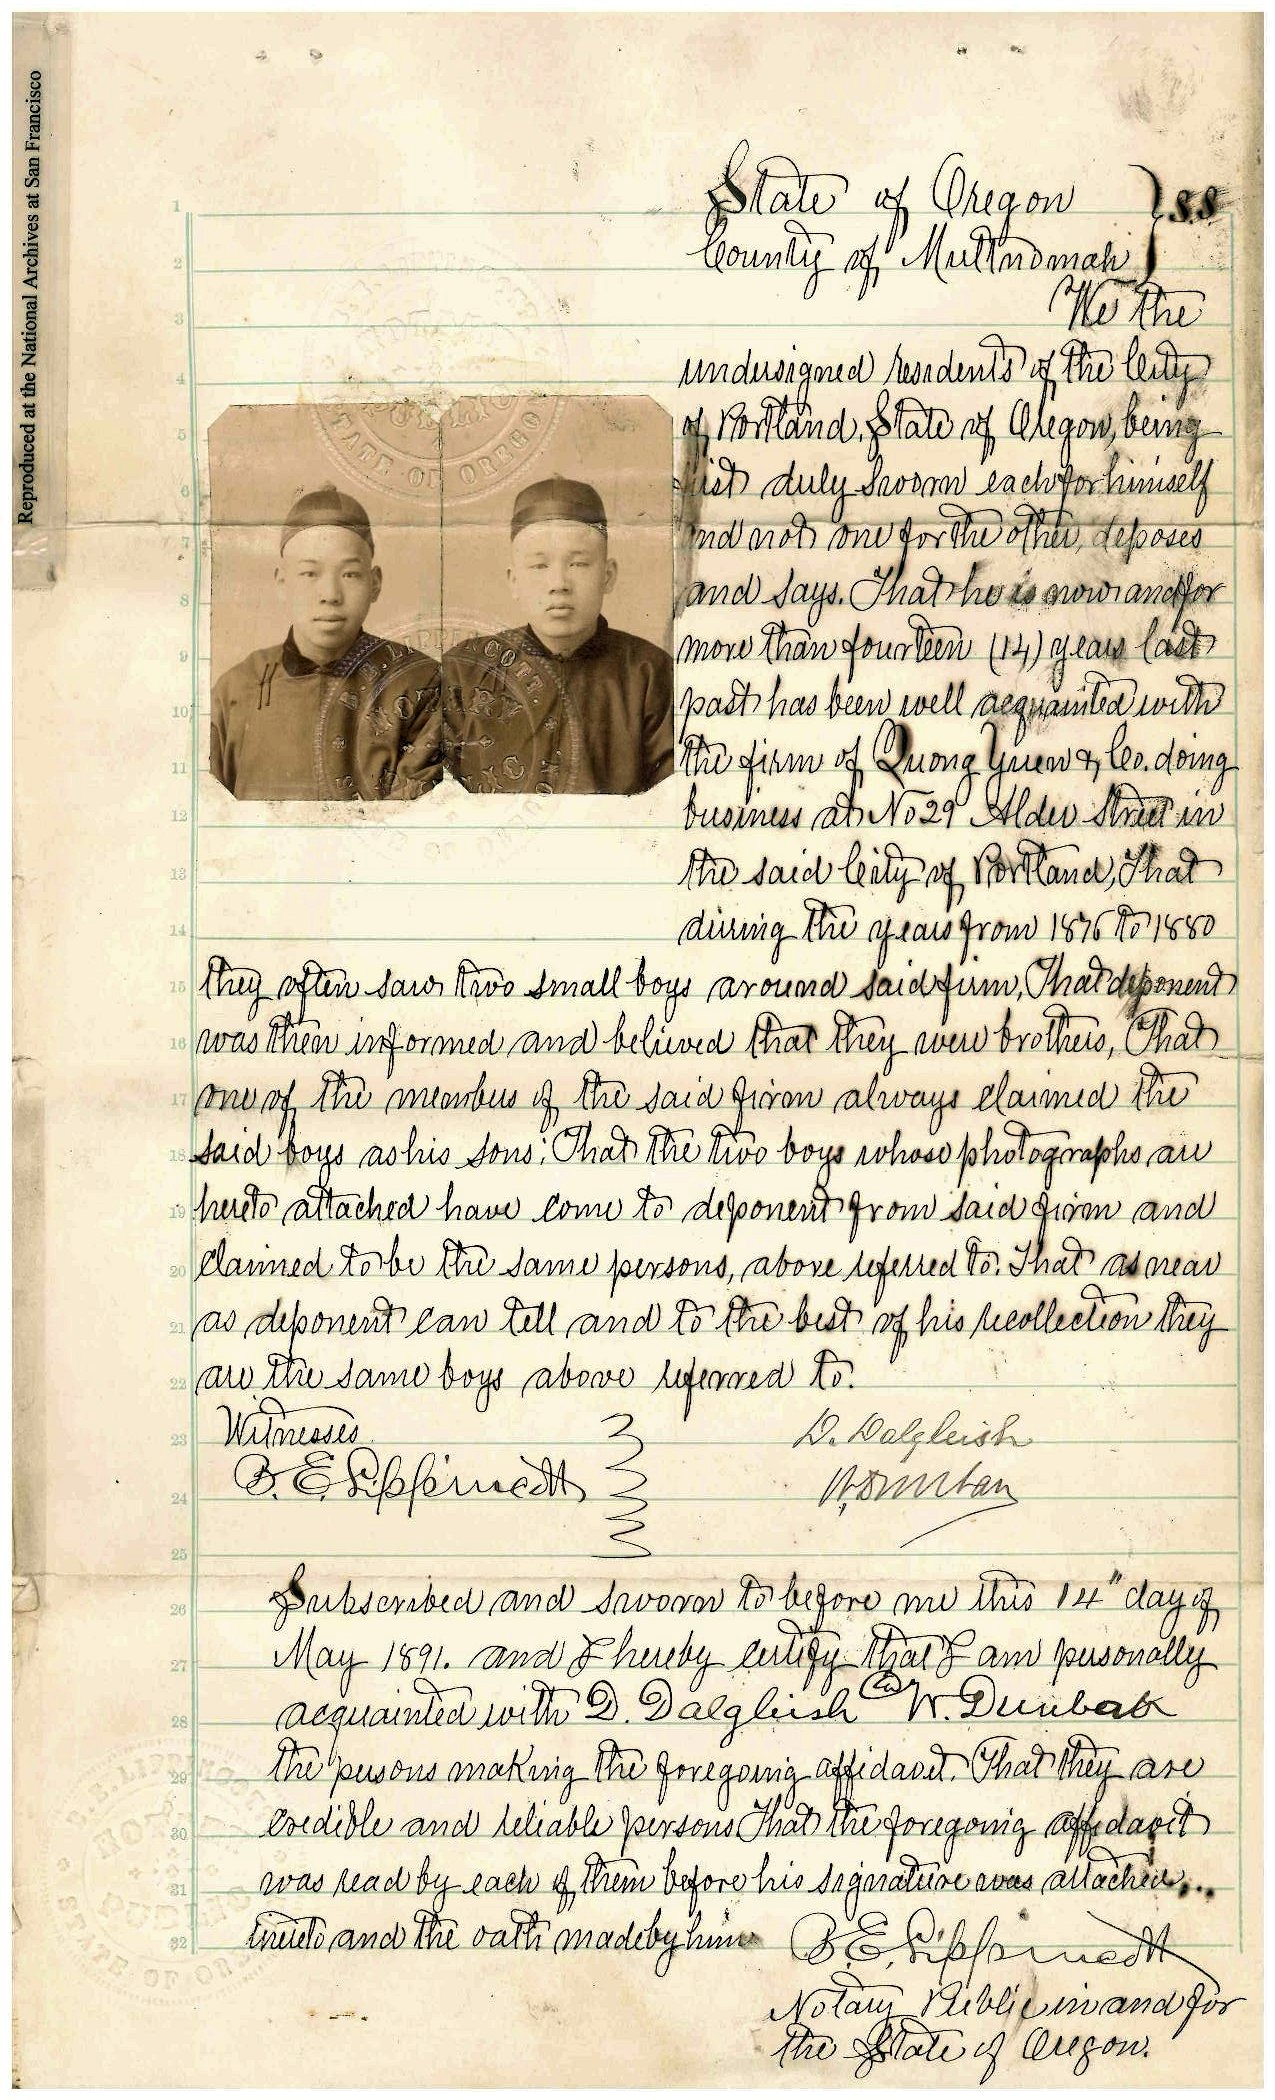 Reproduced at the National Archives at San Francisco
State of Oregon } S.S
County of Multnomah
We the
undersigned residents of the City
of Portland, State of Oregon, being
first duly sworn each for himself
and not one for the other, deposes
and says. That he is now and for
more than fourteen (14) years last
past has been well acquainted with
the firm of Quong Yuen & Co. doing
business at No 29 Alder Street in
the said City of Portland, That
during the years from 1876 to 1880
they often saw two small boys around said firm, That deponent
was then informed and believed that they were brothers, That
one of the members of the said firm always claimed the
said boys as his sons; That the two boys whose photographs are
hereto attached have come to deponent from said firm and
claimed to be the same persons, above referred to. That as near
as deponent can tell and to the best of his recollection they
are the same boys above referred to.
Witnesses
D. Dalgleish
B. E. Lippincott
W. Dunbar
Subscribed and sworn to before me this 14" day of
May 1891. and I hereby certify that I am personally
acquainted with D. Dalgleish & W. Dunbar
the persons making the foregoing affidavit. That they are
credible and reliable persons That the foregoing affidavit
was read by each of them before his signature was attached
thereto and the oath made by him
B. E. Lippincott
Notary Public in and for
the State of Oregon.
1
2
3
4
5
6
7
8
9
10
11
12
13
14
15
16
17
18
19
20
21
22
23
24
25
26
27
28
29
30
31
32
STATE OF OREGON
B. E. LIPPINCOTT.
NOTARY
PUBLIC